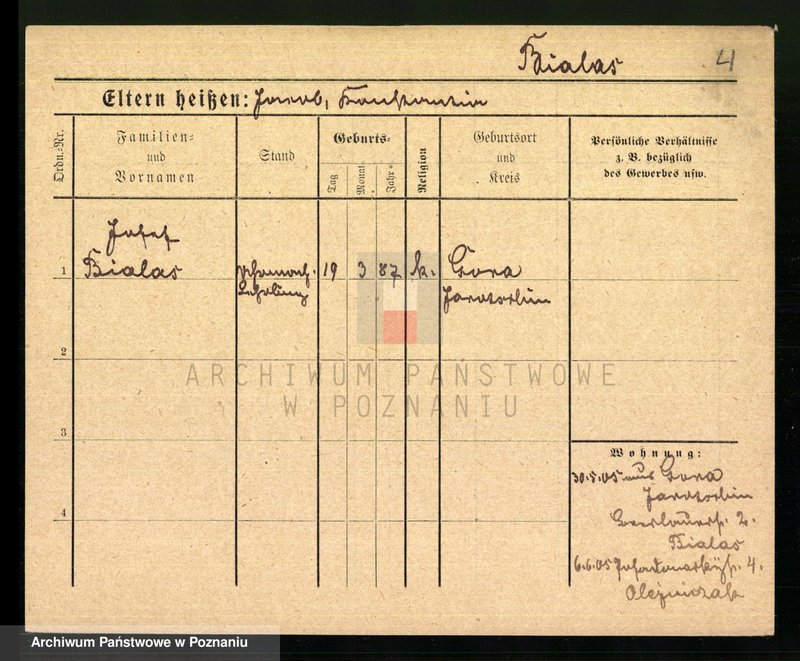 Bialas 4
Eltern heißen: Jacob, Konstantia
Ordn.-Nr.
Familien-
und
Vornamen
Stand
Geburts-
Tag
Monat
Jahr
Religion
Geburtsort
und
Kreis
Persönliche Verhältnisse
z. B. bezüglich
des Gewerbes usw.
Josef
1 Bialas 19 3 87 k. Gora
Lehrling Jarotschin
2
ARCHIWUM PAŃSTWOWE
W POZNANIU
3
Wohnung:
30.5.05 aus Gora
Jarotschin
4
2.
Bialas
6.6.05 4.
Olejniczak
Archiwum Państwowe w Poznaniu